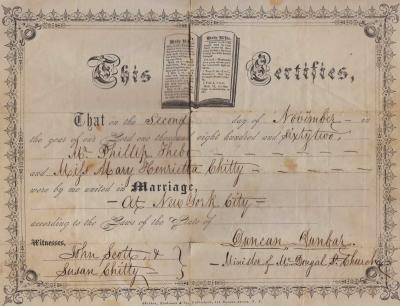 This Certifies,
Holy Bible
Holy Bible
That on the Second day of November in
the year of our Lord one thousand eight hundred and sixty two,
Mr. Phillip
and Miss Mary Henrietta Chitty
were by me united in Marriage,
At New York City
according to the Laws of the State of
Witnesses,
John Scott, &
Susan Chitty
Duncan Dunbar
Minister of McDougal St. Church